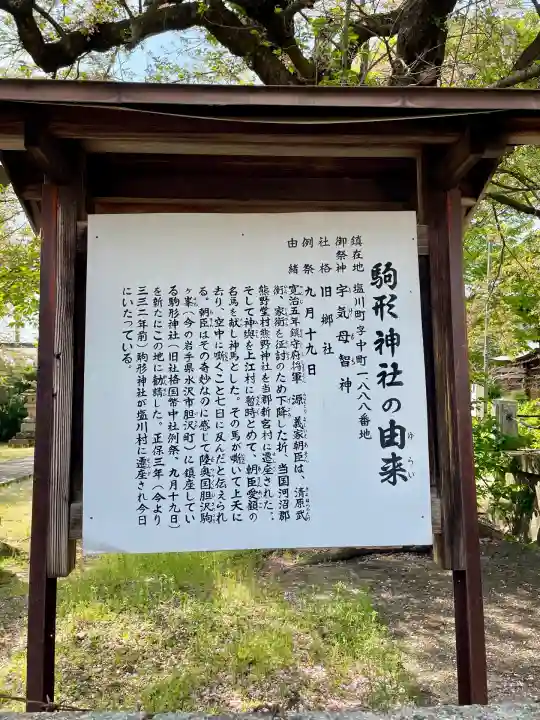 駒形神社の由来
鎮在地 塩川町字中町一八八八番地
御祭神 宇気母智神
社格 旧郷社
例祭 九月十九日
由緒 寛治五年鎮守府将軍 源 義家朝臣は、清原武
衡、家衡を征討のため下降した折、当国河沼郡
熊野堂村熊野神社を当郡新宮村に遷座された。
そして神輿を上江村に暫時とめて、朝臣愛顧の
名馬を献し神馬とした。その馬が嘶いて上天に
去り、空中に嘶くこと七日に及んだと伝えられ
る。朝臣はその奇妙なのに感じて陸奥国胆沢駒
ヶ峯(今の岩手県水沢市胆沢町)に鎮座してい
る駒形神社(旧社格国幣中社例祭、九月十九日)
を新たにこの地に勧請した。正保三年(今より
三三二年前)駒形神社が塩川村に遷座され今日
にいたっている。